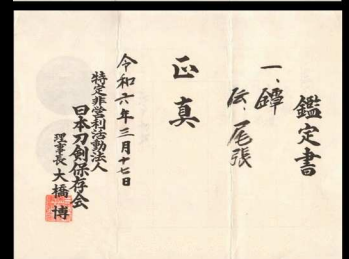 鑑定書
一、鐔
伝、尾張
正真
令和六年三月十七日
特定非営利活動法人
日本刀剣保存会
理事長 大橋 博